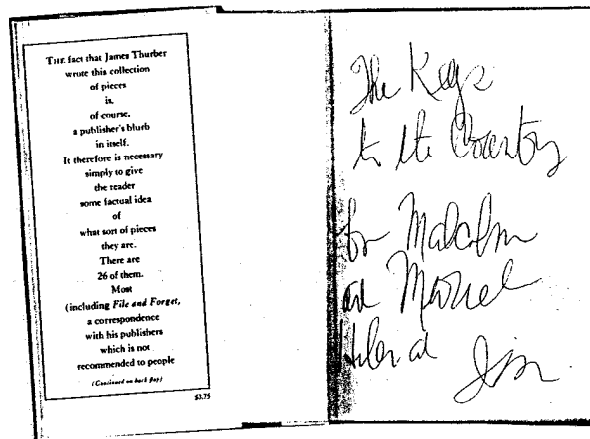 THE fact that James Thurber
wrote this collection
of pieces
is,
of course,
a publisher's blurb
in itself.
It therefore is necessary
simply to give
the reader
some factual idea
of
what sort of pieces
they are.
There are
26 of them.
Most
(including File and Forget,
a correspondence
with his publishers
which is not
recommended to people
(Continued on back flap)
$3.75
The Keys
to the Country
for Malcolm
and Muriel
Jim